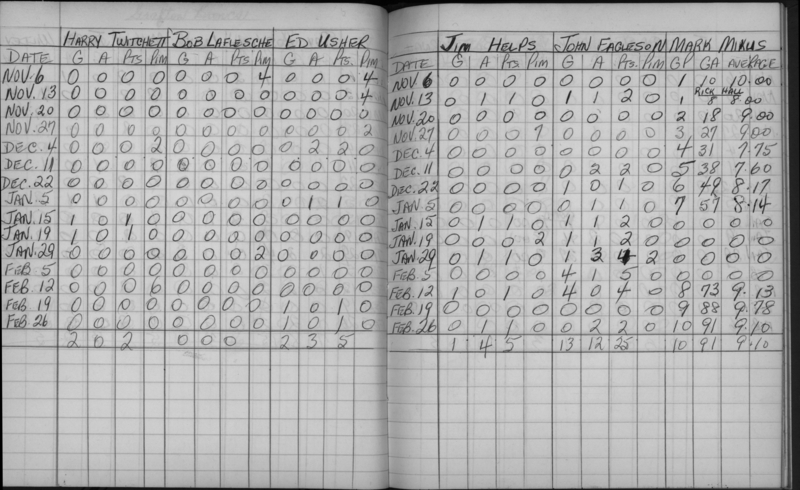 HARRY TWITCHETT BOB LAFLESCHE ED USHER
DATE G A Pts. Pim G A Pts Pim G A Pts. Pim
NOV. 6 0 0 0 0 0 0 0 4 0 0 0 4
NOV. 13 0 0 0 0 0 0 0 0 0 0 0 4
NOV. 20 0 0 0 0 0 0 0 0 0 0 0 0
NOV. 27 0 0 0 0 0 0 0 0 0 0 0 2
DEC. 4 0 0 0 2 0 0 0 0 0 2 2 0
DEC. 11 0 0 0 0 0 0 0 0 0 0 0 0
DEC. 22 0 0 0 0 0 0 0 0 0 0 0 0
JAN. 5 0 0 0 0 0 0 0 0 0 1 1 0
JAN. 15 1 0 1 0 0 0 0 0 0 0 0 0
JAN. 19 1 0 1 0 0 0 0 0 0 0 0 0
JAN. 29 0 0 0 0 0 0 0 2 0 0 0 0
FEB. 5 0 0 0 0 0 0 0 0 0 0 0 0
FEB. 12 0 0 0 0 0 0 0 0 0 0 0
FEB. 19 0 0 0 0 0 0 0 0 1 0 1 0
FEB. 26 0 0 0 0 0 0 0 0 1 0 1 0
2 0 2 0 0 0 2 3 5
JIM HELPS JOHN EAGLESON MARK MIKUS
DATE G A Pts. Pim G A Pts. Pim GP GA AVERAGE
NOV 6 0 0 0 0 0 0 0 0 1 10 10.00
RICK HALL
NOV. 13 0 1 1 0 1 1 2 0 1 8 8.00
NOV. 20 0 0 0 0 0 0 0 0 2 18 9.00
NOV. 27 0 0 0 7 0 0 0 0 3 27 9.00
DEC. 4 0 0 0 0 0 0 0 0 4 31 7.75
DEC. 11 0 0 0 0 0 2 2 0 5 38 7.60
DEC. 22 0 0 0 0 1 0 1 0 6 49 8.17
JAN. 5 0 0 0 0 0 1 1 0 7 57 8.14
JAN. 15 0 1 1 0 1 1 2 0 0 0 0 0
JAN. 19 0 0 0 2 1 1 2 0 0 0 0 0
JAN. 29 0 1 1 0 1 3 4 2 0 0 0 0
FEB. 5 0 0 0 0 4 1 5 0 0 0 0 0
FEB. 12 1 0 1 0 4 0 4 0 8 73 9.13
FEB. 19 0 0 0 0 0 0 0 0 9 88 9.78
FEB. 26 0 1 1 0 0 2 2 0 10 91 9.10
1 4 5 13 12 25 10 91 9.10